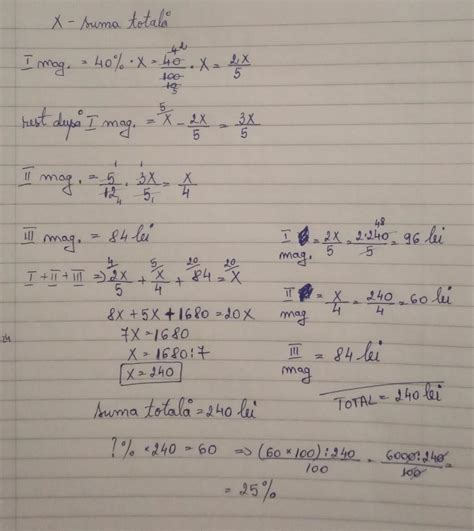 X - suma totală
I mag. = 40% · X = 40/100 · X = 2X/5
rest după I mag. = X - 2X/5 = 3X/5
II mag. = 5/12 · 3X/5 = X/4
III mag. = 84 lei
I + II + III => 2X/5 + X/4 + 84 = X
8X + 5X + 1680 = 20X
7X = 1680
X = 1680:7
X = 240
I mag. = 2X/5 = 2·240/5 = 96 lei
II mag = X/4 = 240/4 = 60 lei
III mag = 84 lei
TOTAL = 240 lei
suma totală = 240 lei
?% × 240 = 60 => (60 × 100):240/100 = 6000:240/100 =
= 25%